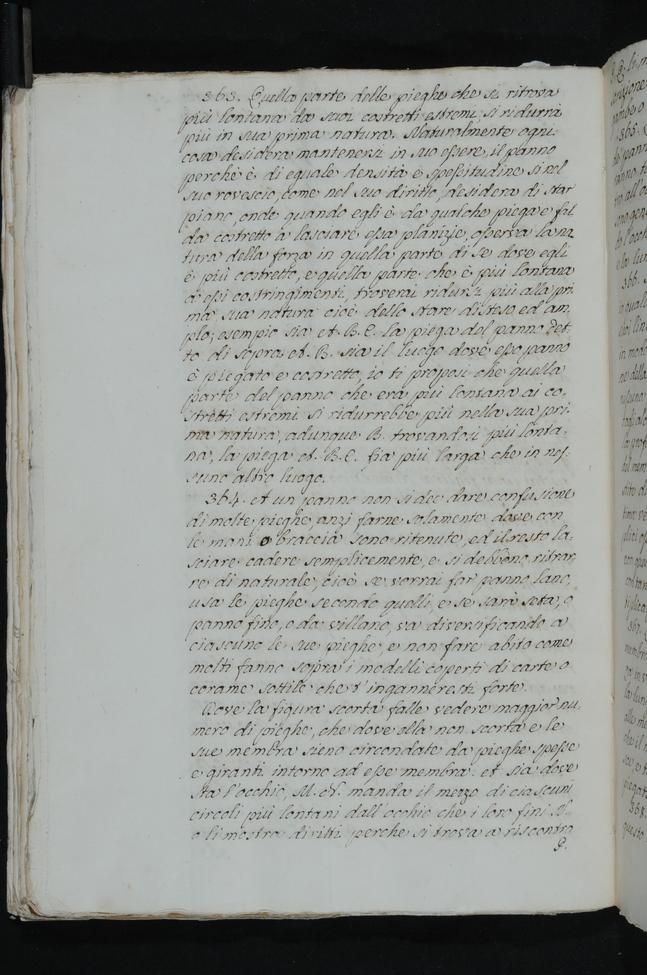 363. Quella parte delle pieghe che si ritrova
più lontana da suoi costretti estremi, si ridurrà
più in sua prima natura. Naturalmente ogni
cosa desidera mantenersi in suo essere, il panno
perchè è di equale densità e spessitudine si nel
suo rovescio, come nel suo diritto, desidera di star
piano, onde quando egli è da qualche piega e fal
da costretto à lasciare essa planizie, osserva la na
tura della forza in quella parte di se dove egli
è più costretto, e quella parte che è più lontana
à essi costringimenti, troverai ridursi più alla pri
ma sua natura cioè dello stare disteso ed am
plo; esempio sia A. B. C. la piega del panno det
to di sopra A. B. sia il luogo dove esso panno
è piegato e costretto, io ti proposi che quella
parte del panno che era più lontana ai co
stretti estremi si ridurrebbe più nella sua pri
ma natura, adunque B. trovandosi più lonta
na, la piega A. B. C. fia più larga che in nes
suno altro luogo.
364. A un panno non si dee dare confusione
di molte pieghe, anzi farne solamente dove con
le mani o braccia sono ritenute, ed il resto la
sciare cadere semplicemente, e si debbono ritrar
re di naturale, cioè se vorrai far panno lano,
usa le pieghe secondo quelli, e se sarà seta, o
panno fino, o da villano, va diversificando a
ciascuno le sue pieghe, e non fare abito come
molti fanno sopra i modelli coperti di carte o
corame sottile che t'inganneresti forte.
Dove la figura scorta falle vedere maggior nu
mero di pieghe, che dove ella non scorta e le
sue membra sieno circondate da pieghe spesse
e giranti intorno ad esse membra. A sia dove
sta l'occhio, M. N. manda il mezzo di ciascuni
circoli più lontani dall'occhio che i loro fini N.
o li mostra diritti perche si trova a riscontro
P.